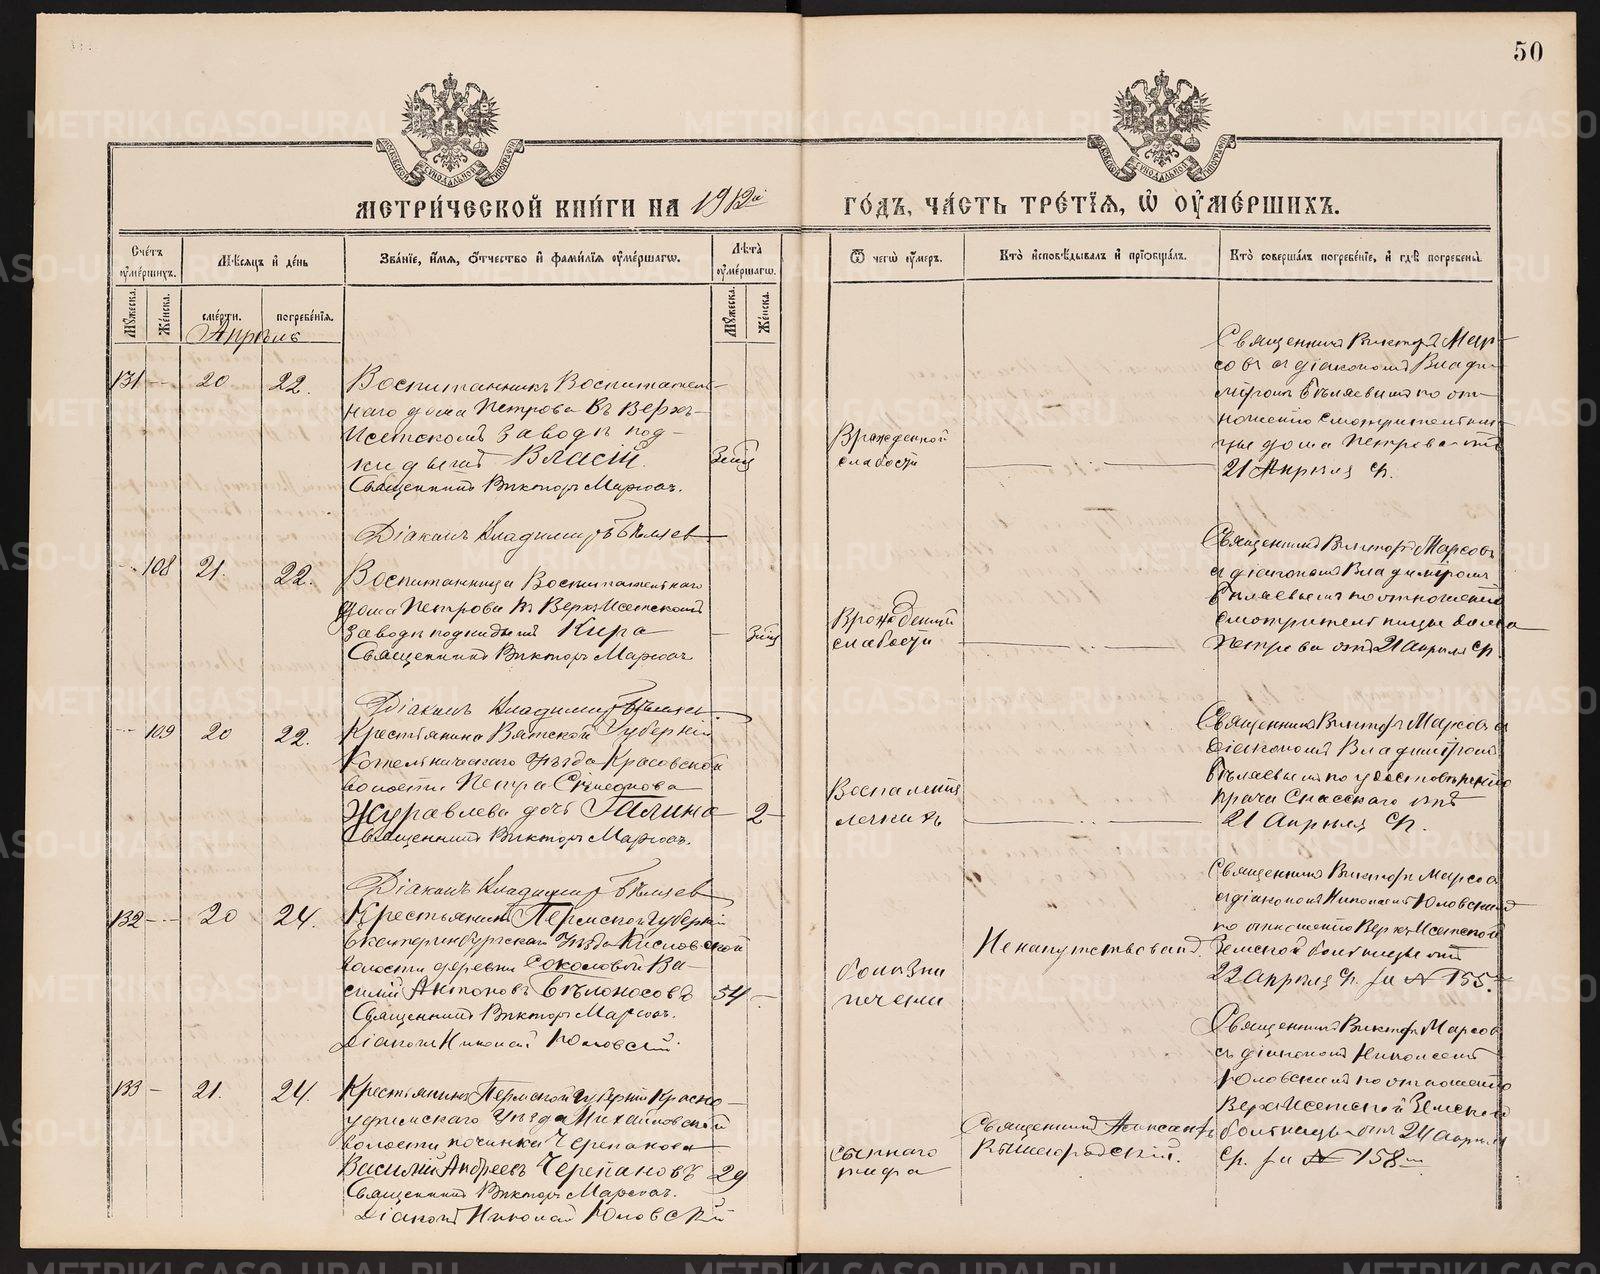 50
МЕТРИ́ЧЕСКОЙ КНИ́ГИ НА 1912й
ГО́ДЪ, ЧА́СТЬ ТРЕ́ТІѦ, Ѡ҆ ОУ҆МЕ́РШИХЪ.
Сче́тъ оу҆ме́ршихъ.
Мѣ́сяцъ и҆ де́нь
Зва́ніе, и҆́мя, ѻ҆́тчество и҆ фами́лія оу҆ме́ршагѡ.
Лѣ́та оу҆ме́ршагѡ.
Ѿ чегѡ̀ оу҆́меръ.
Кто̀ и҆сповѣ́дывалъ и҆ пріѡбща́лъ.
Кто̀ соверша́лъ погребе́ніе, и҆ гдѣ̀ погребены̀.
Мꙋ́жеска.
Же́нска.
сме́рти.
погребе́нія.
Мꙋ́жеска.
Же́нска.
Апрѣль
131 20 22.
Воспитанникъ Воспитатель-
наго дома Петрова въ Верхъ-
Исетскомъ заводѣ под-
кидышъ Власій.
Священникъ Викторъ Марсовъ.
Діаконъ Владимиръ Бѣляев
3 мѣс
Врожденной
слабости
Священникъ Викторъ Мар-
совъ съ діакономъ Влади-
міромъ Бѣляевымъ по от-
ношенію смотрительни-
цы дома Петрова отъ
21 Апрѣля с/г.
108 21. 22.
Воспитанница Воспитательнаго
дома Петрова въ Верхъ-Исетскомъ
заводѣ подкидышъ Кира
Священникъ Викторъ Марсовъ
Діаконъ Владимиръ Бѣляев.
Врожденной
слабости
Священникъ Викторъ Марсовъ
съ діакономъ Владиміромъ
Бѣляевымъ по отношенію
смотрительницы дома
Петрова отъ 21 Апрѣля с/г.
109 20 22.
Крестьянина Вятской Губерніи
Котельническаго Уѣзда Красовской
волости Петра Симеонова
Журавлева дочь Галина
Священникъ Викторъ Марсовъ.
Діаконъ Владимиръ Бѣляев
2
Воспаленія
легкихъ
Священникъ Викторъ Марсовъ съ
діакономъ Владиміромъ
Бѣляевымъ по удостовѣренію
врача Спасскаго отъ
21 Апрѣля с/г.
132 20 24.
Крестьянинъ Пермской Губерніи
Екатеринбургскаго Уѣзда Кисловской
волости деревни Соколовой Ва-
силій Антоновъ Бѣлоносовъ
Священникъ Викторъ Марсовъ.
Діаконъ Николай Юловскій.
54
болѣзни
печени
Не напутствованъ.
Священникъ Викторъ Марсовъ
съ діакономъ Николаемъ Юловскимъ
по отношенію Верхъ-Исетской
Земской больницы отъ
22 Апрѣля с/г. за № 155.
133 21. 24.
Крестьянинъ Пермской Губерніи Красно-
уфимскаго Уѣзда Михайловской
волости починка Черепанова
Василій Андреевъ Черепановъ
Священникъ Викторъ Марсовъ.
Діаконъ Николай Юловскій
29
сыпнаго
тифа
Священникъ Александръ
Вышегородскій.
Священникъ Викторъ Марсовъ
съ діакономъ Николаемъ
Юловскимъ по отношенію
Верх-Исетской Земской
больницы отъ 24 Апрѣля
с/г. за № 158